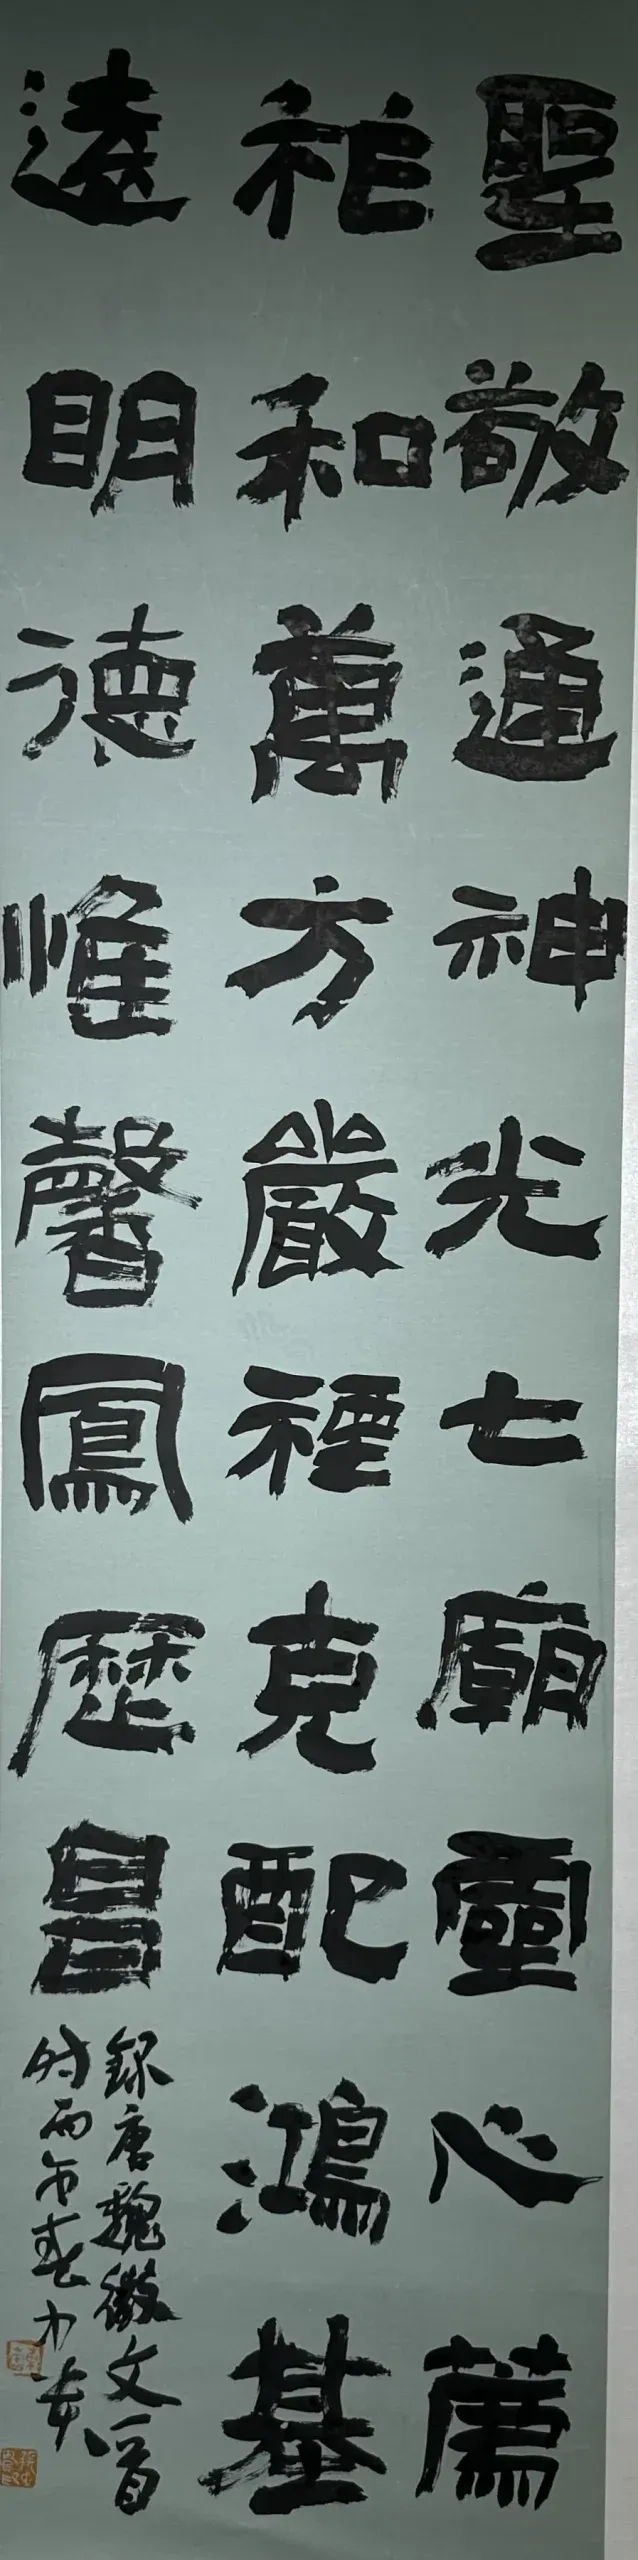 聖敬通神光七廟靈心薦
祚和萬方嚴禋克配鴻基
遠明德惟馨鳳曆昌
錄唐魏徵文一首
時丙午春力夫